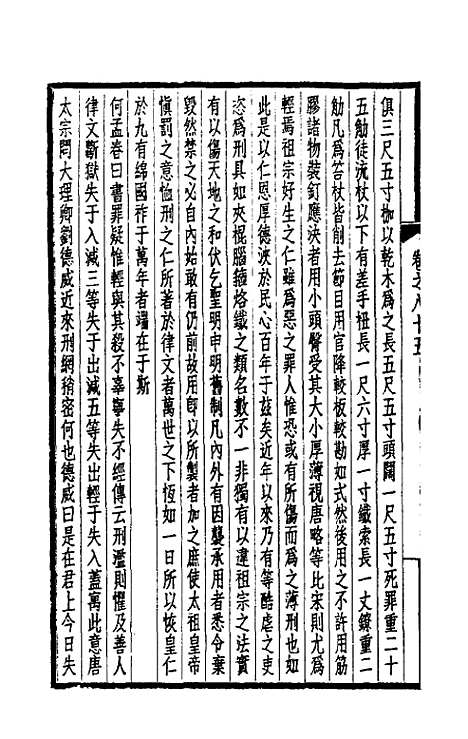 卷之八十五
俱三尺五寸枷以乾木爲之長五尺五寸頭闊一尺五寸死罪重二十
五觔徒流杖以下有差手杻長一尺六寸厚一寸鐵索長一丈鐐重二
觔凡爲笞杖皆削去節目用官降較板較勘如式然後用之不許用筋
膠諸物裝釘應決者用小頭臀受其大小厚薄視唐略等比宋則尤爲
輕焉祖宗好生之仁雖爲惡之罪人惟恐或有所傷而爲之薄刑也如
此是以仁恩厚德浹於民心百年于兹矣近年以來乃有等酷虐之吏
恣爲刑具如夾棍腦箍烙鐵之類名數不一非獨有以違祖宗之法實
有以傷天地之和伏乞聖明申明舊制凡内外有因襲承用者悉令棄
毁然禁之必自内始敢有仍前故用卽以所製者加之庶使太祖皇帝
愼罰之意恤刑之仁所著於律文者萬世之下恆如一日所以恢皇仁
於九有綿國祚于萬年者端在于斯
何孟春曰書罪疑惟輕與其殺不辜寧失不經傳云刑濫則懼及善人
律文斷獄失于入減三等失于出減五等失出輕于失入蓋寓此意唐
太宗問大理卿劉德威近來刑網稍密何也德威曰是在君上今日失